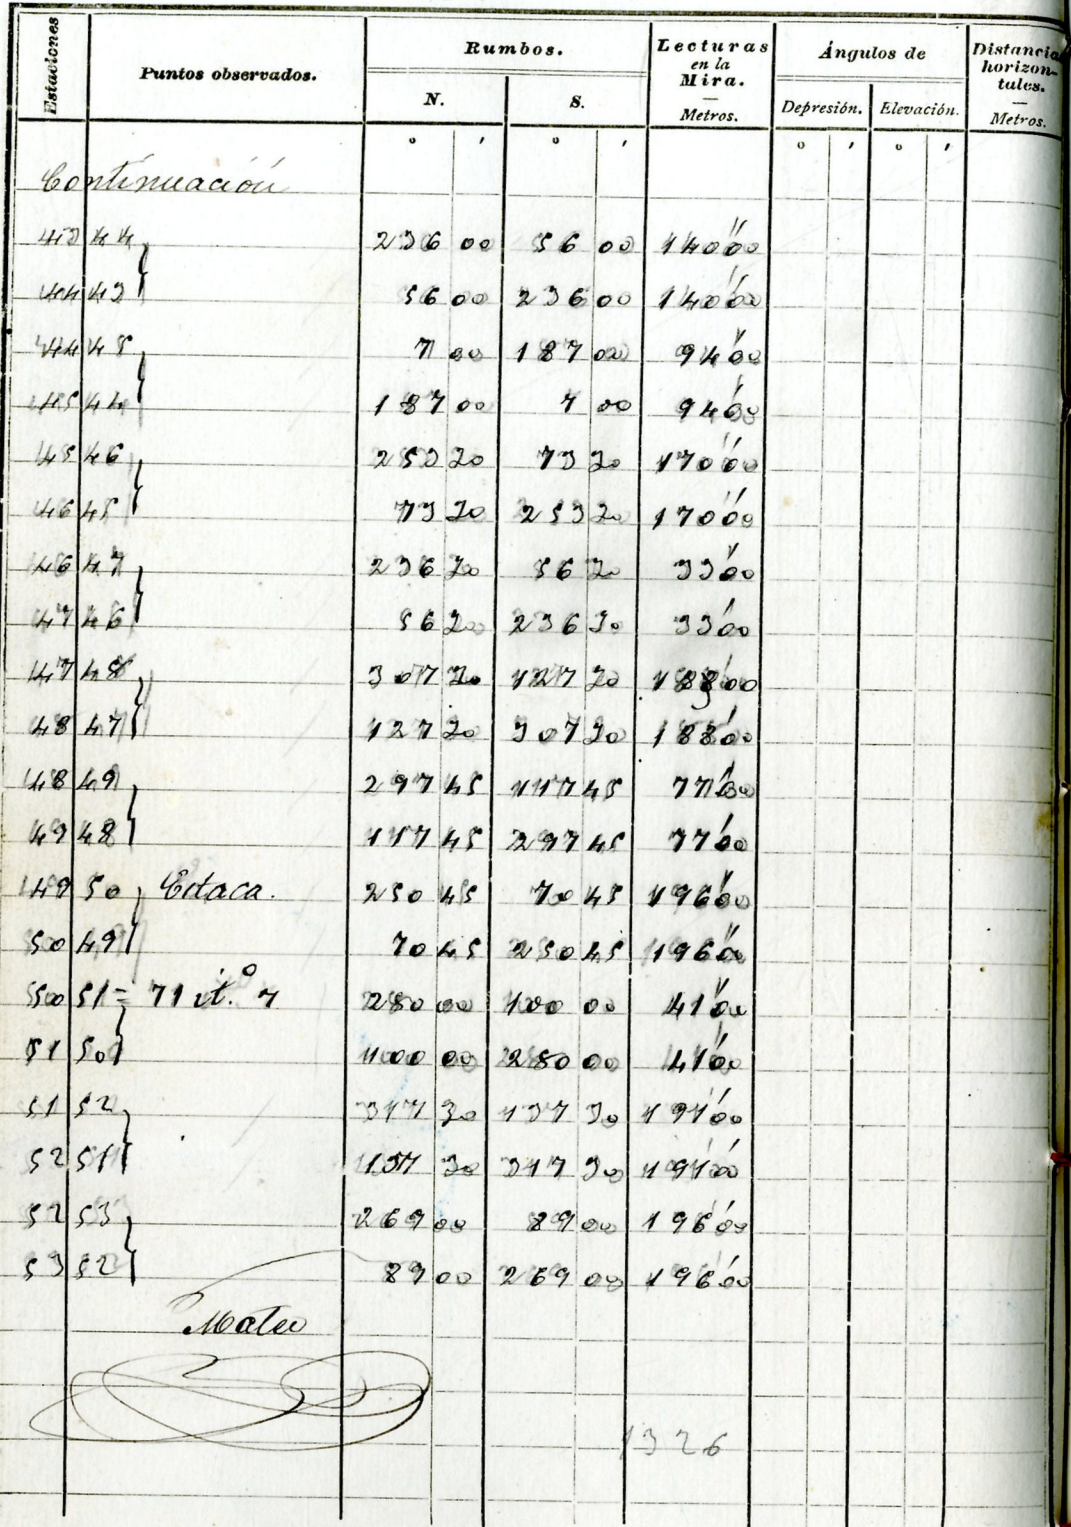 Estaciones | Puntos observados. | Rumbos. | Lecturas en la Mira. — Metros. | Ángulos de | Distancias horizontales. — Metros.
N. | S. | Depresión. | Elevación.
° ′ | ° ′ | ° ′ | ° ′
Continuación
43 44 236 00 56 00 140'00
44 43 56 00 236 00 140'00
44 45 7 00 187 00 94'00
45 44 187 00 7 00 94'00
45 46 253 30 73 30 170'00
46 45 73 30 253 30 170'00
46 47 236 30 56 30 33'00
47 46 56 30 236 30 33'00
47 48 307 30 127 30 188'00
48 47 127 30 307 30 188'00
48 49 297 45 117 45 77'00
49 48 117 45 297 45 77'00
49 50 Estaca. 250 45 70 45 196'00
50 49 70 45 250 45 196'00
50 51 = 71 it.º 7 280 00 100 00 41'00
51 50 100 00 280 00 41'00
51 52 317 30 137 30 191'00
52 51 137 30 317 30 191'00
52 53 269 00 89 00 196'00
53 52 89 00 269 00 196'00
Mateo
1326